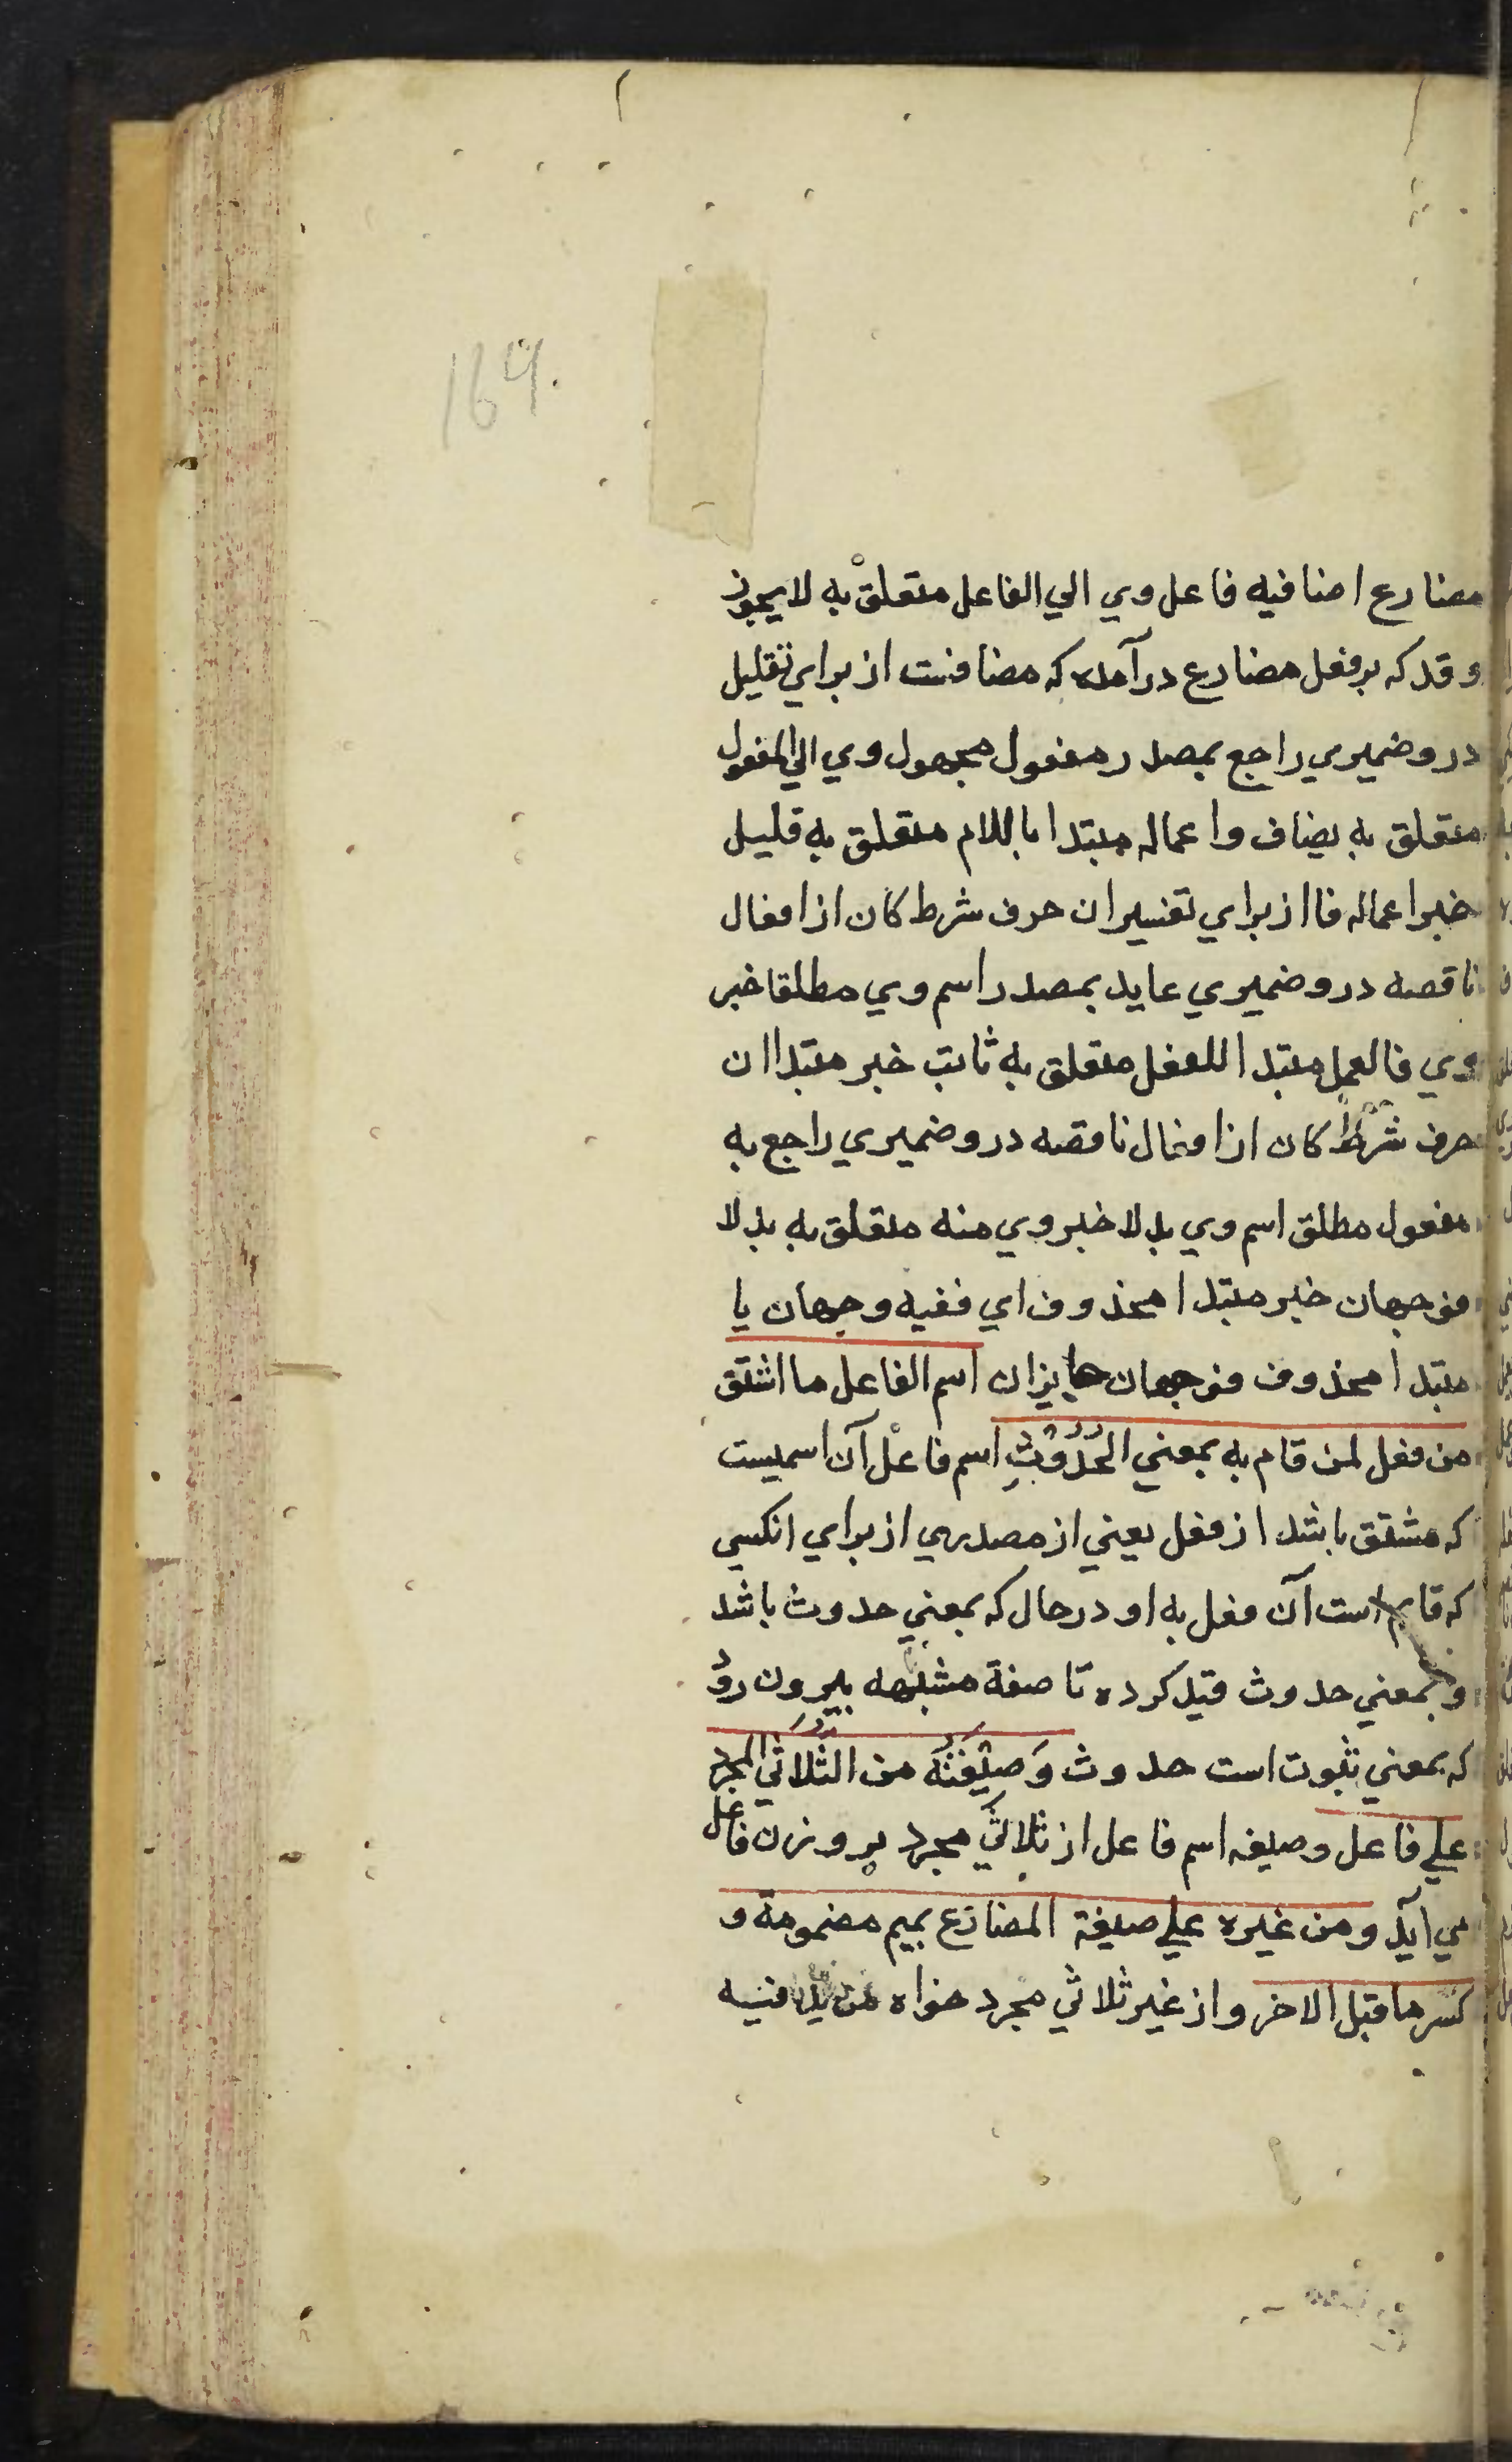 164.
مضارع اضافیه فاعل وي الي الفاعل متعلق به لا یجوز
و قد که بر فعل مضارع درآمده که مضافست از براي تقلیل
درو ضمیري راجع بمصدر مفعول مجهول وي الي المفعول
متعلق به یضاف و اعماله مبتدا باللام متعلق به قلیل
خبر اعماله فا از براي تفسیر ان حرف شرط کان از افعال
ناقصه درو ضمیري عاید بمصدر اسم وي مطلقا خبر
وي فالعمل مبتدا للفعل متعلق به ثابت خبر مبتدا ان
حرف شرط کان از افعال ناقصه درو ضمیري راجع به
مفعول مطلق اسم وي بدلا خبر وي منه متعلق به بدلا
فوجهان خبر مبتدا محذوف اي ففیه وجهان یا
مبتدا محذوف فوجهان جایزان اسم الفاعل ما اشتق
من فعل لمن قام به بمعني الحُدُوْثِ اسم فاعل آن اسمیست
که مشتق باشد از فعل یعني از مصدري از براي انکسي
که قایم است آن فعل به او در حال که بمعني حدوث باشد
و بمعني حدوث قید کرده تا صفة مشبهه بیرون رود
که بمعني ثبوت است حدوث وَصِیْغَتُهُ من الثُّلاثي المجرد
علي فاعل و صیغه اسم فاعل از ثلاثي مجرد بر وزن فاعل
مي آید و من غیره علي صیغة المضارع بمیم مضمومة و
کسر ما قبل الاخر و از غیر ثلاثي مجرد خواه مزید فیه